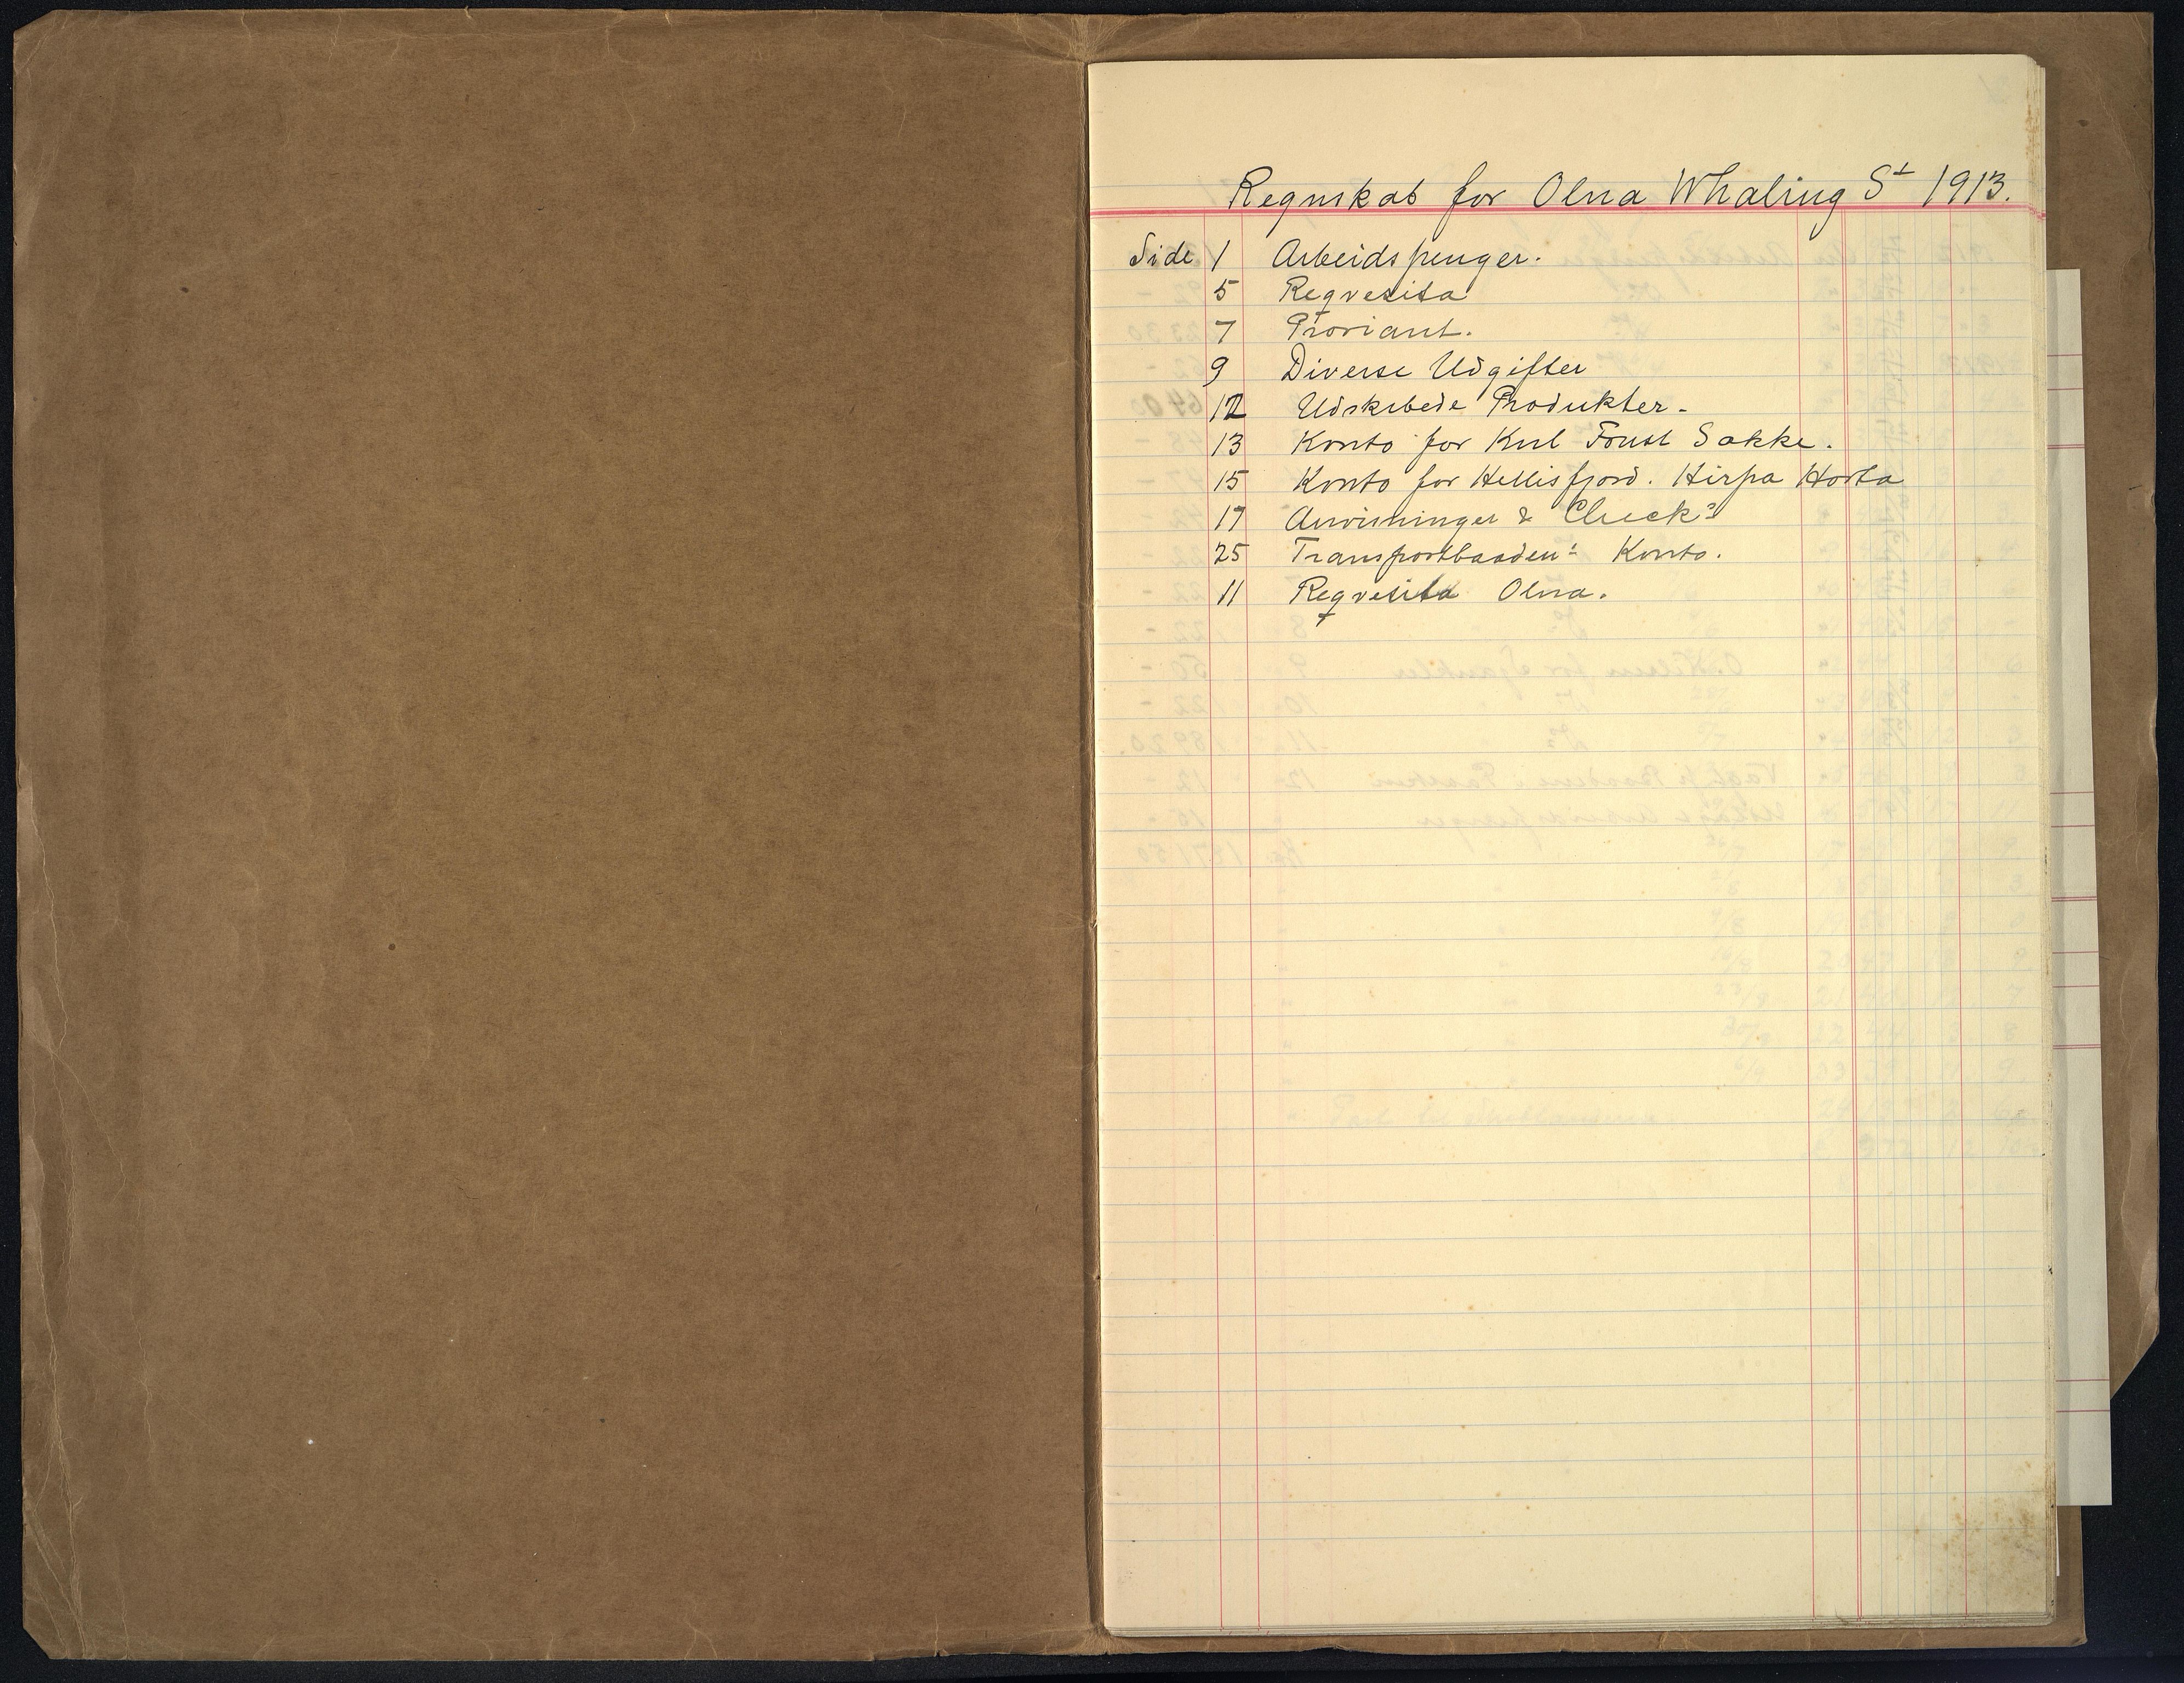 Regnskab for Olna Whaling St 1913.
Side 1 Arbeidspenger.
5 Reqvesita
7 Proviant.
9 Diverse Udgifter
12 Udskibede Produkter.
13 Konto for Kul Tønst Sække.
15 Konto for Hellisfjord. Hirpa Horta
17 Anvisninger & Check's
25 Transportbaaden's Konto.
11 Reqvesita Olna.